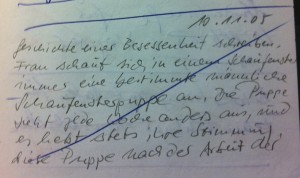 10.11.05
Geschichte einer Besessenheit schreiben.
Frau schaut sich in einem Schaufenster
immer eine bestimmte männliche
Schaufensterpuppe an. Die Puppe
sieht jede Woche anders aus, und
es hebt stets ihre Stimmung,
diese Puppe nach der Arbeit der